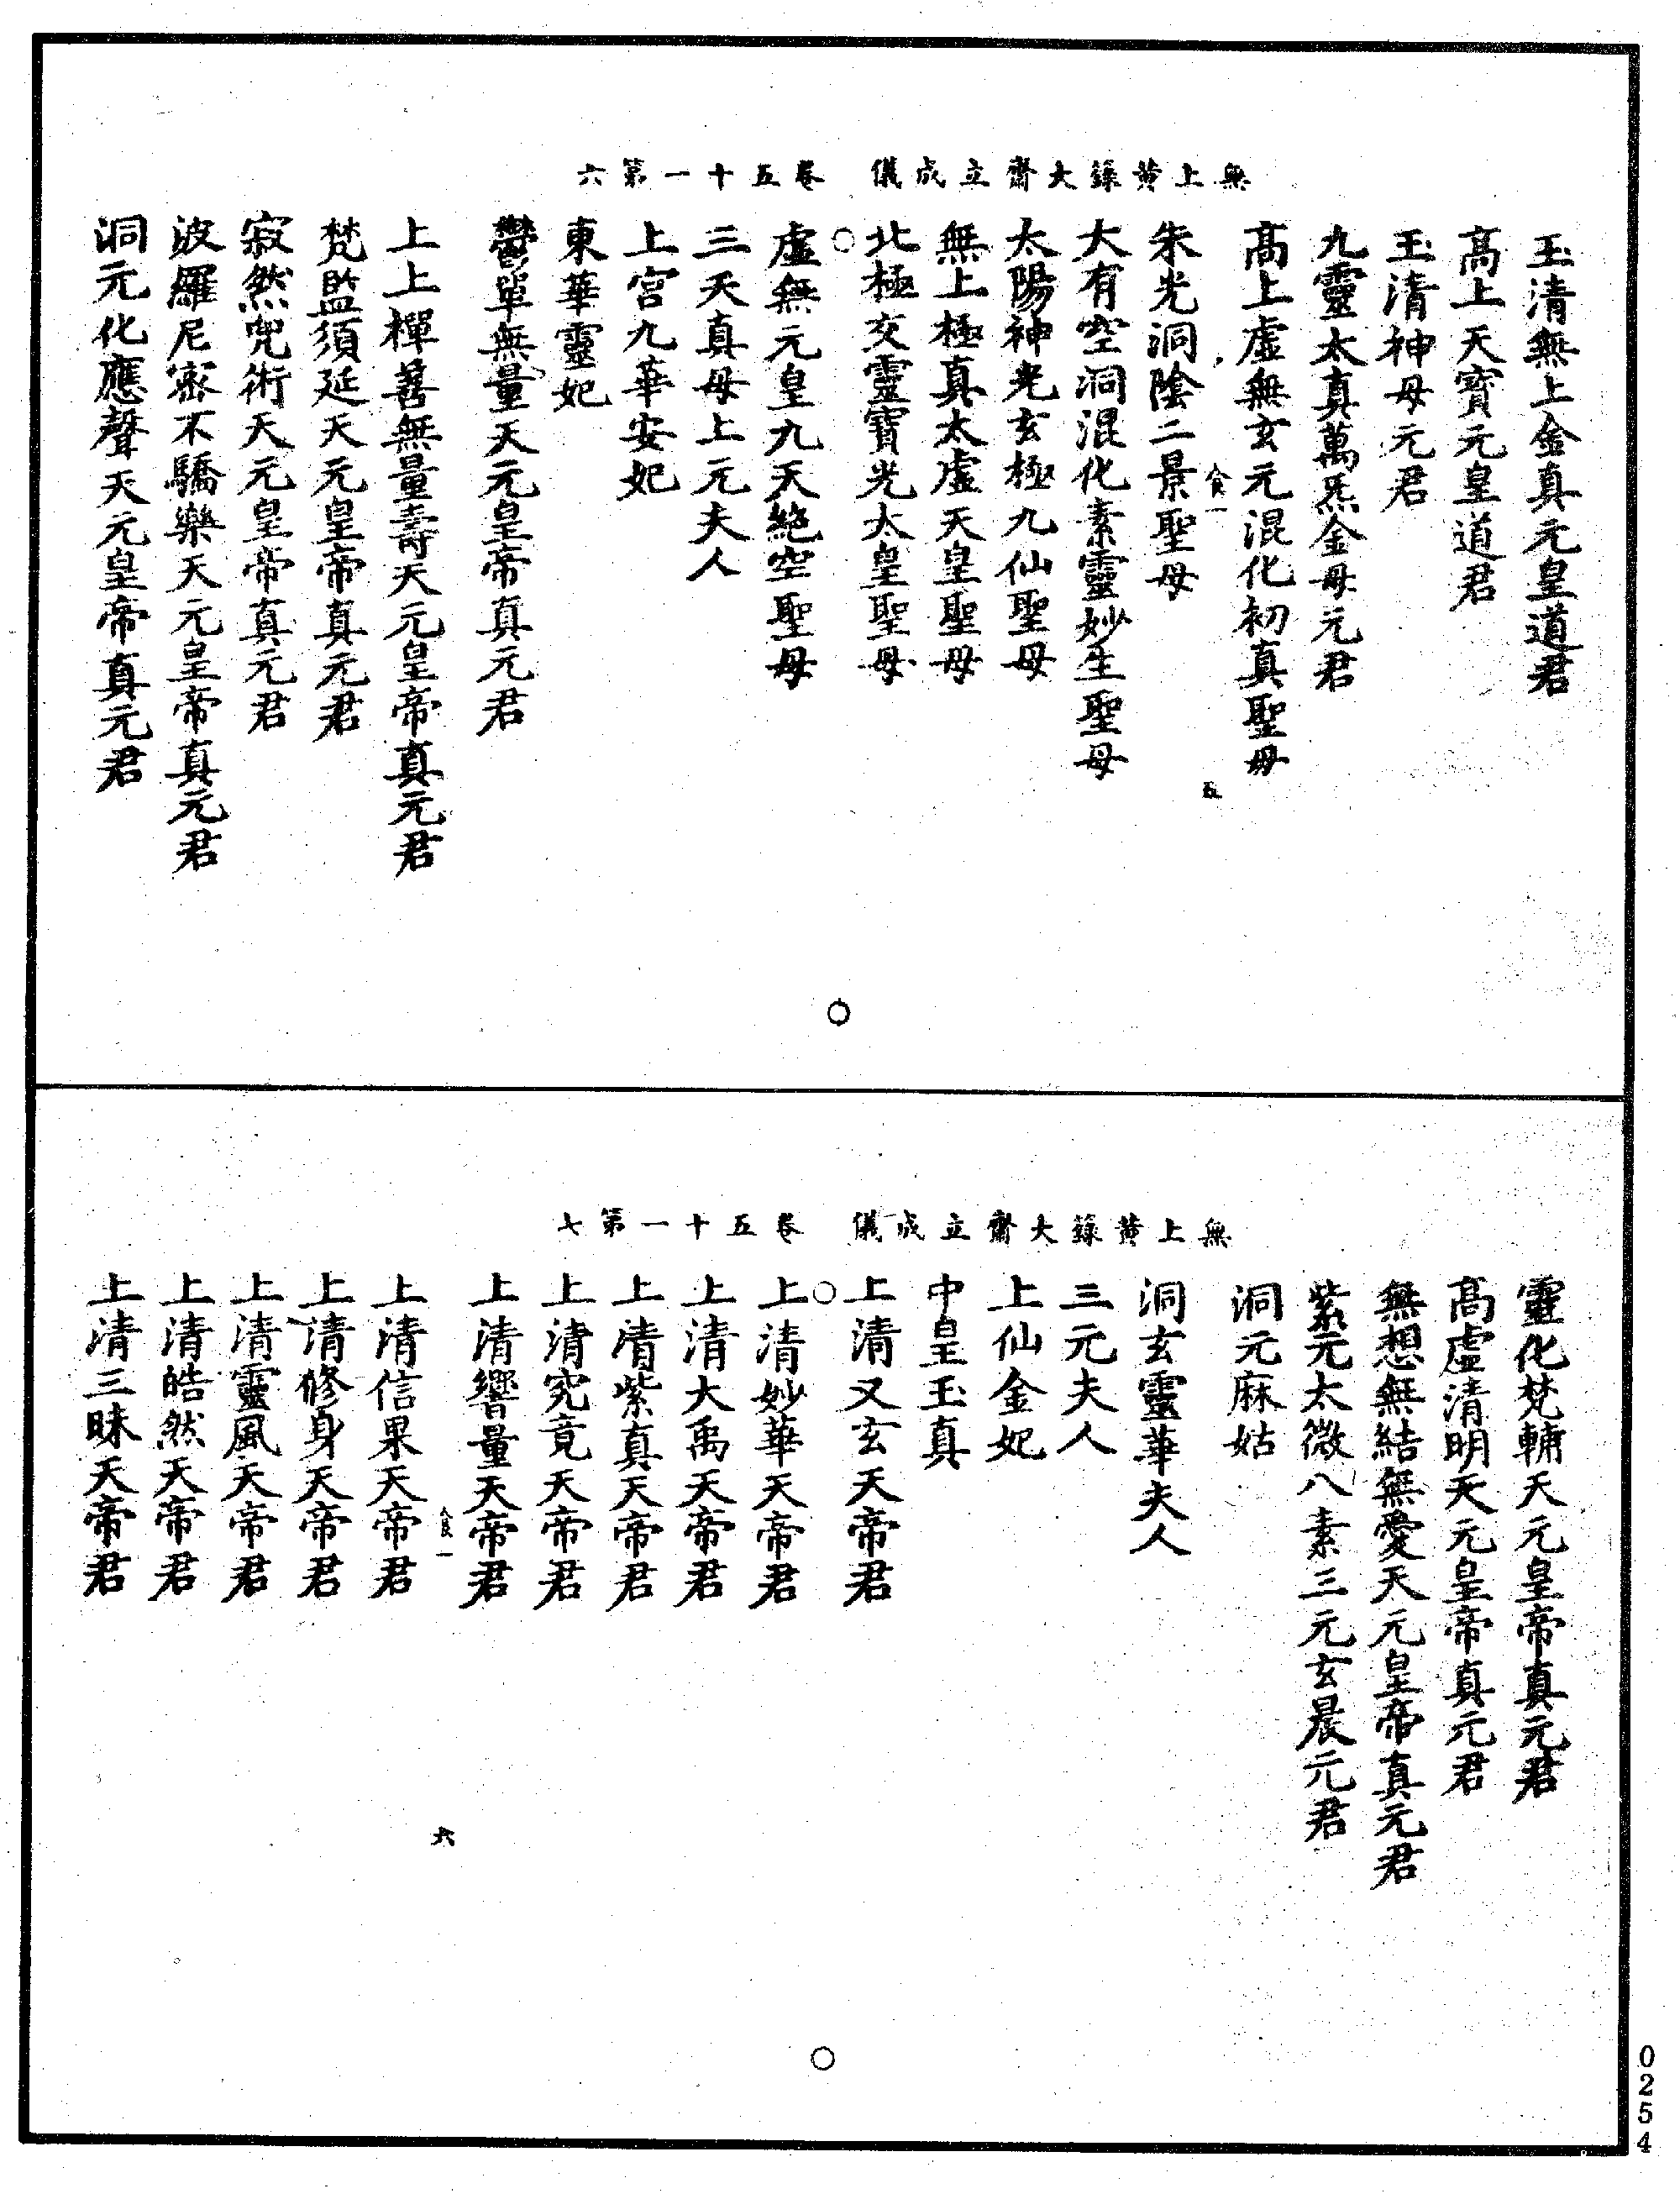 無上黃籙大齋立成儀　卷五十一第六
玉清無上金真元皇道君
高上天寶元皇道君
玉清神母元君
九靈太真萬炁金母元君
高上虛無玄元混化初真聖母
食一
五
朱光洞陰二景聖母
大有空洞混化素靈妙生聖母
太陽神光玄極九仙聖母
無上極真太虛天皇聖母
北極玄靈寶光太皇聖母
虛無元皇九天絶空聖母
三天真母上元夫人
上宮九華安妃
東華靈妃
鬱單無量天元皇帝真元君
上上禪善無量壽天元皇帝真元君
梵監須延天元皇帝真元君
寂然兜術天元皇帝真元君
波羅尼密不驕樂天元皇帝真元君
洞元化應聲天元皇帝真元君
無上黃籙大齋立成儀　卷五十一第七
靈化梵輔天元皇帝真元君
高虛清明天元皇帝真元君
無想無結無愛天元皇帝真元君
紫元太微八素三元玄晨元君
洞元麻姑
洞玄靈華夫人
三元夫人
上仙金妃
中皇玉真
上清又玄天帝君
上清妙華天帝君
上清大禹天帝君
上清紫真天帝君
上清究竟天帝君
上清響量天帝君
食一
六
上清信果天帝君
上清修身天帝君
上清靈風天帝君
上清皓然天帝君
上清三昧天帝君
0254